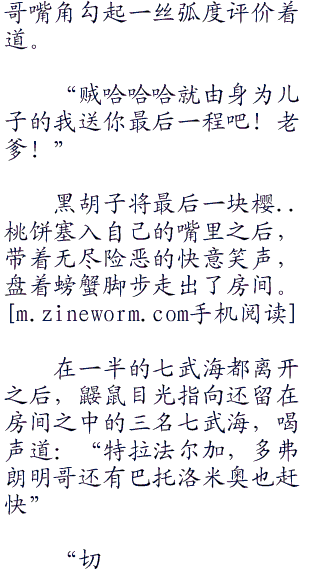 哥嘴角勾起一丝弧度评价着
道。
“贼哈哈哈就由身为儿
子的我送你最后一程吧！老
爹！”
黑胡子将最后一块樱..
桃饼塞入自己的嘴里之后，
带着无尽险恶的快意笑声，
盘着螃蟹脚步走出了房间。
[m.zineworm.com手机阅读]
在一半的七武海都离开
之后，鼹鼠目光指向还留在
房间之中的三名七武海，喝
声道：“特拉法尔加，多弗
朗明哥还有巴托洛米奥也赶
快”
“切